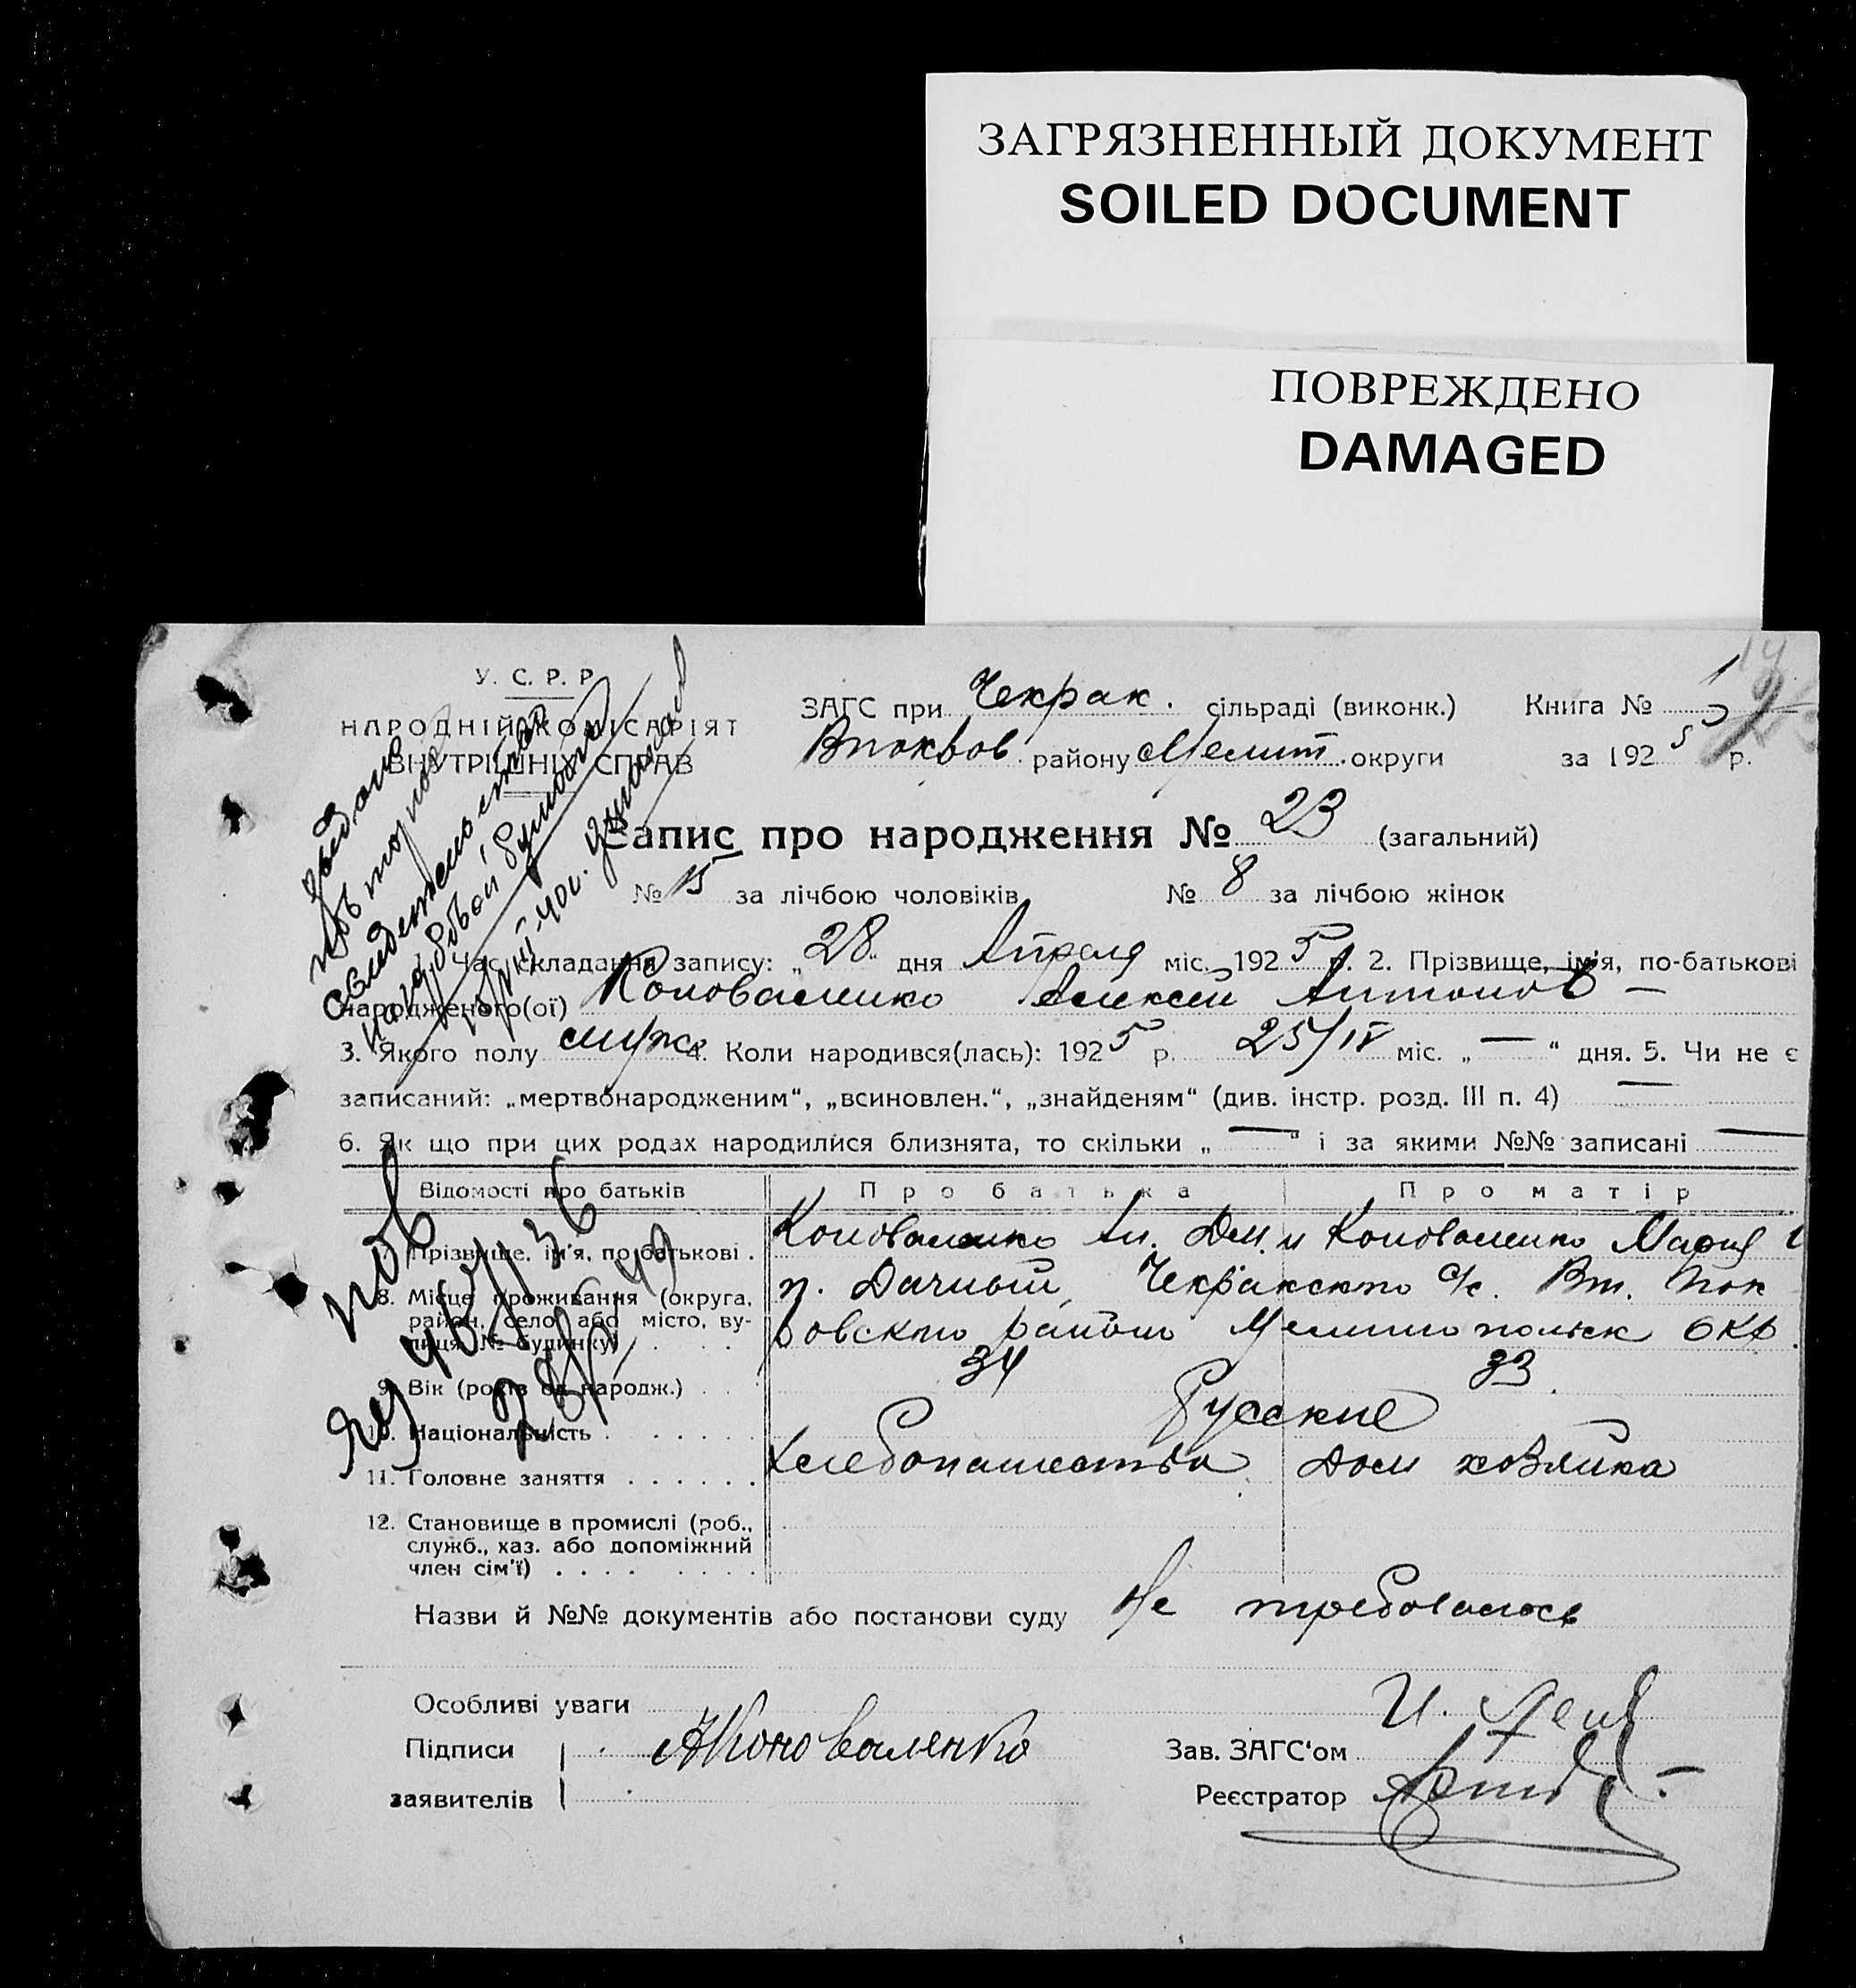 ЗАГРЯЗНЕННЫЙ ДОКУМЕНТ
SOILED DOCUMENT
ПОВРЕЖДЕНО
DAMAGED
У. С. Р. Р.
НАРОДНІЙ КОМІСАРІЯТ
ВНУТРІШНІХ СПРАВ
ЗАГС при Чекрак. сільраді (виконк.) Книга №
району Мелит. округи за 1925 р.
Запис про народження № 23 (загальний)
№ 15 за лічбою чоловіків № 8 за лічбою жінок
Час складання запису: „28“ дня Апреля міс. 1925 р. 2. Прізвище, ім'я, по-батькові
народженого(ої) Коноваленко Алексей Антонов —
3. Якого полу муж. 4. Коли народився(лась): 1925 р. 25/IV міс. „—“ дня. 5. Чи не є
записаний: „мертвонародженим“, „всиновлен.“, „знайденям“ (див. інстр. розд. III п. 4) —
6. Як що при цих родах народилися близнята, то скільки „—“ і за якими №№ записані —
Відомості про батьків Про батька Про матір
7. Прізвище, ім'я, по-батькові . Коноваленко Ан. Дем. и Коноваленко Мария
8. Місце проживання (округа, п. Дачный, Чекракского с/с. Вт. Пок
район, село або місто, ву- ровского района Мелитопольск окр.
лиця № будинку) . . . .
9. Вік (років од народж.) . . 34 33
10. Національність . . . . . Русские
11. Головне заняття . . . . . . Хлебопашество Дом хозяйка
12. Становище в промислі (роб.,
служб., хаз. або допоміжний
член сім'ї) . . . . . . . .
Назви й №№ документів або постанови суду Не требовалось
Особливі уваги
Підписи АКоноваленко Зав. ЗАГС'ом
заявителів Реєстратор